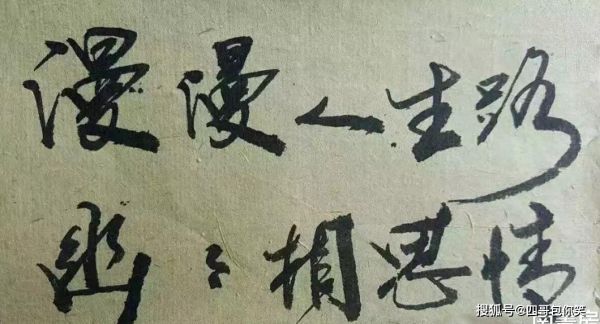 漫漫人生路
幽々相思情
搜狐号@四哥包你笑